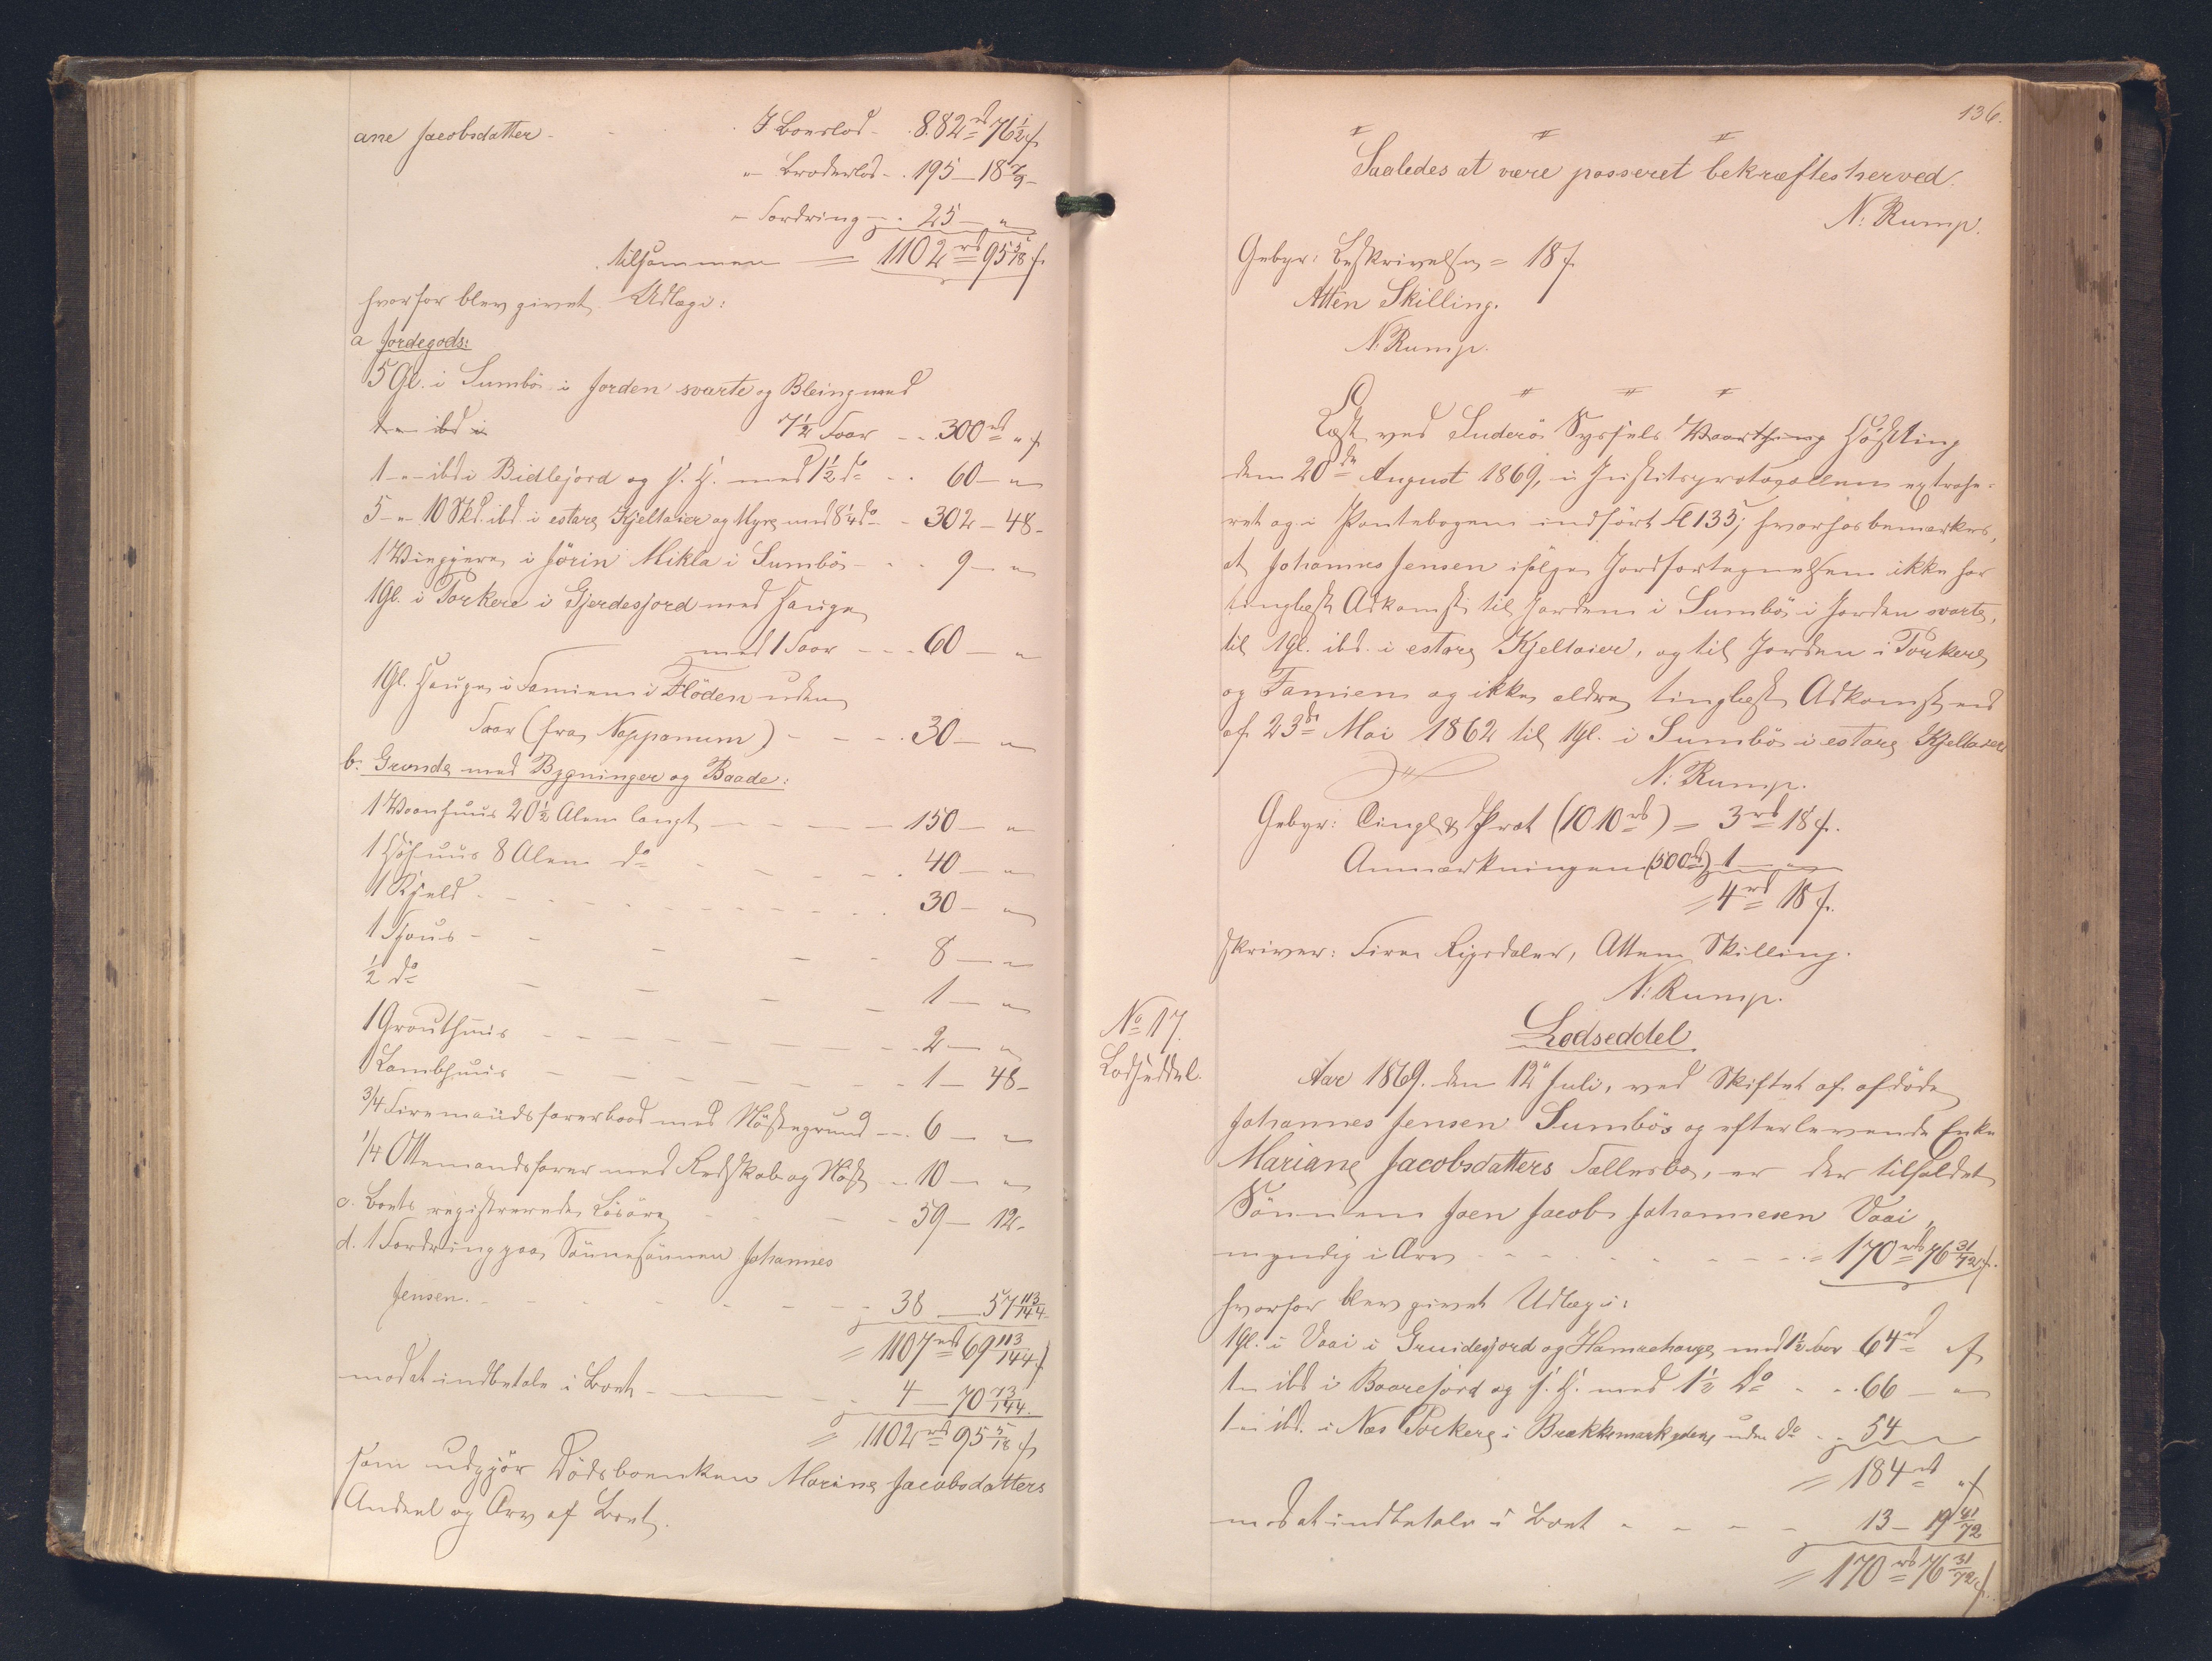 ane Jacobsdatter - - I Boeslod - 882 rd 76 1/2 f
" Broderlod - 195 - 18 7/9 -
" Fordring - 25 - "
tilsammen = 1102 rd 95 5/18 f.
hvorfor blev givet Udlæg:
a Jordegods:
5 Gl. i Sumbö i Jorden svarte og Bleing med
7 1/2 Foor - - 300 rd " f
1 - " - ibd i Bidlejord og f. H. med 1 1/2 do - - 60 - "
5 - " - 10 Skd. ibd i estare Kjeltaier og Myre med 8 1/4 do - 302 - 48 -
1 i Jörin Mikla i Sumbö - - - 9 - "
1 Gl. i Porkere i Gjerdesjord med Hauge
med 1 Foor - - - 60 - "
1 Gl. Hauge i Famien i Flöden uden
Foor (fra Nopponum) - - - 30 - "
b. Grunde med Bygninger og Baade:
1 Vaanhuus 20 1/2 Alen langt - - - 150 - "
1 Höhuus 8 Alen do - - - 40 - "
1 Kjeld - - - 30 - "
1 - - - 8 - "
1/2 do - - - 1 - "
1 Grouthuus - - - 2 - "
1 Lambhuus - - - 1 - 48 -
3/4 Firemandsfarerbaad med Nöstegrund - - 6 - "
1/4 Ottemandsfarer med Redskab og Nöst - - 10 - "
c. Boets registrerede Lösöre - - - 59 - 12 -
d. 1 Fordring paa Sönnesönnen Johannes
Jensen - - - 38 - 57 113/144
= 1107 rd 69 113/144 f
mod at indbetale i Boet - - - 4 - 70 73/144
= 1102 rd 95 5/18 f
som udgjör Dödsboenken Mariane Jacobsdatters
Andeel og Arv af Boet.
136.
Saaledes at være passeret bekræftes herved.
N: Rump.
Gebyr: Beskrivelsen = 18 f
Atten Skilling.
N: Rump.
Læst ved Suderö Syssels Vaarthing Höstting
den 20de August 1869, i Justitsprotocollen extrahe-
ret og i Pantebogen indfört Fl 135; hvorhos bemærkes,
at Johannes Jensen ifölge Jordfortegnelsen ikke har
tinglæst Adkomst til Jorden i Sumbö i Jorden svarte,
til 1 Gl. ibd. i estare Kjeltaier, og til Jorden i Porkere
og Famien og ikke ældre tinglæst Adkomst end
af 23de Mai 1862 til 1 Gl. i Sumbö i estare Kjeltaier
N: Rump.
Gebyr: Tingl & Prot (1010 rd) = 3 rd 18 f.
Anmærkningen (500 rd) 1 - "
= 4 rd 18 f.
skriver: Fire Rigsdaler, Atten Skilling.
N: Rump.
No 17.
Lodseddel.
Lodseddel.
Aar 1869. den 12te Juli, ved Skiftet af afdöde
Johannes Jensen Sumbös og efterlevende Enke
Mariane Jacobsdatters Fællesbo, er der tilfaldet
Sönnen Joen Jacob Johannesen Vaai,
myndig i Arv - - - = 170 rd 76 31/72 f.
hvorfor blev givet Udlæg i:
1 Gl. i Vaai i Gruidesjord og Hamrehauge med 1 1/2 Foor 64 rd " f
1 - " ibd i Baarejord og f. H. med 1 1/2 Do - - 66 - "
1 - " ibd. i Nes Porkere i uden do - - 54
= 184 rd " f
mod at indbetale i Boet - - - 13 - 19 41/72
= 170 rd 76 31/72 f.